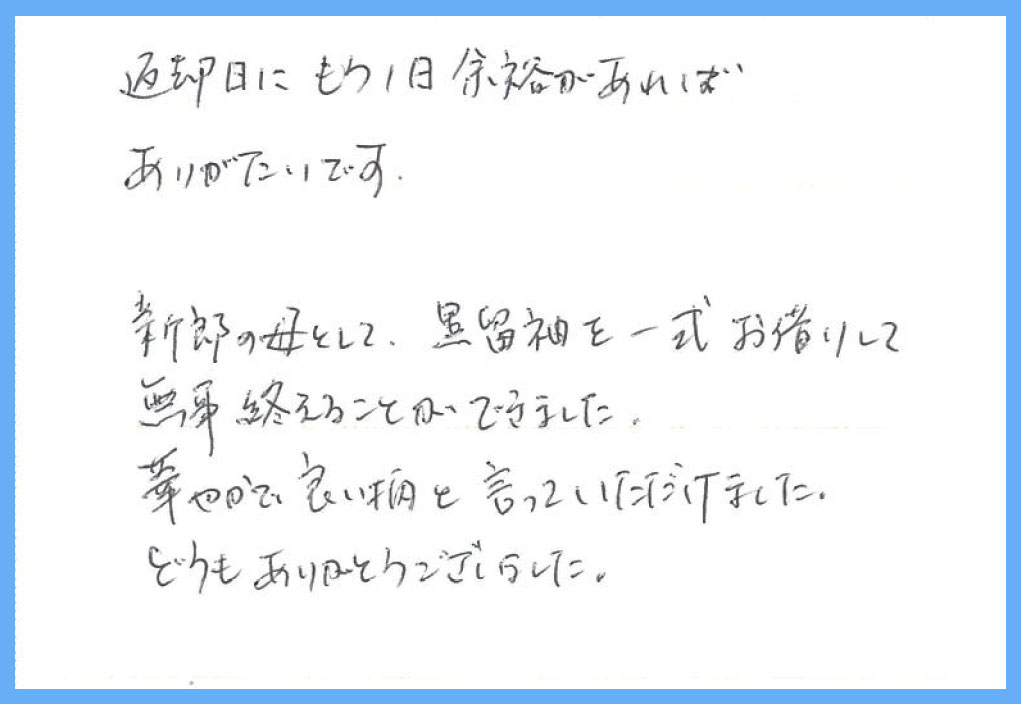 返却日にもう1日余裕があれば
ありがたいです.
新郎の母として、黒留袖を一式お借りして
無事終えることができました.
華やかで良い柄と言っていただけました.
どうもありがとうございました。